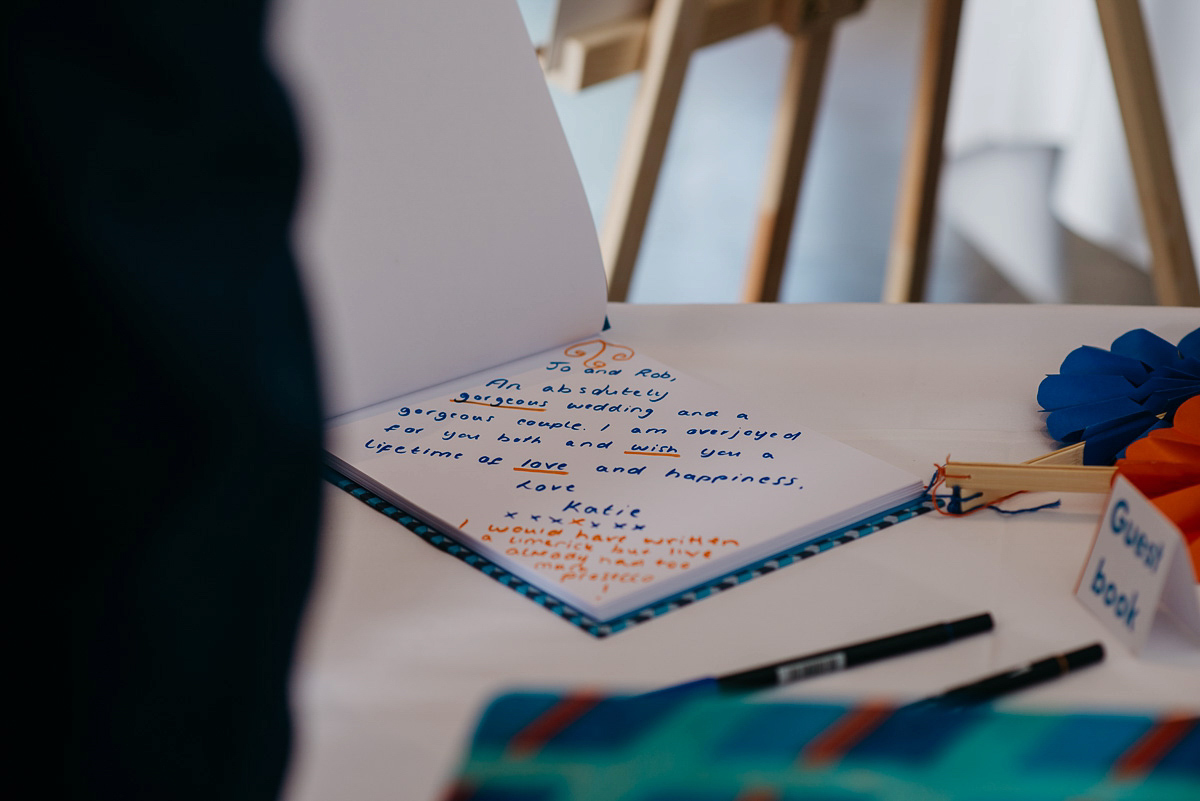 Jo and Rob,
An absolutely
gorgeous wedding and a
gorgeous couple. I am overjoyed
for you both and wish you a
lifetime of love and happiness.
Love
Katie
x x x x x x x
I would have written
a limerick but I've
already had too
much
prosecco
!
Guest
book